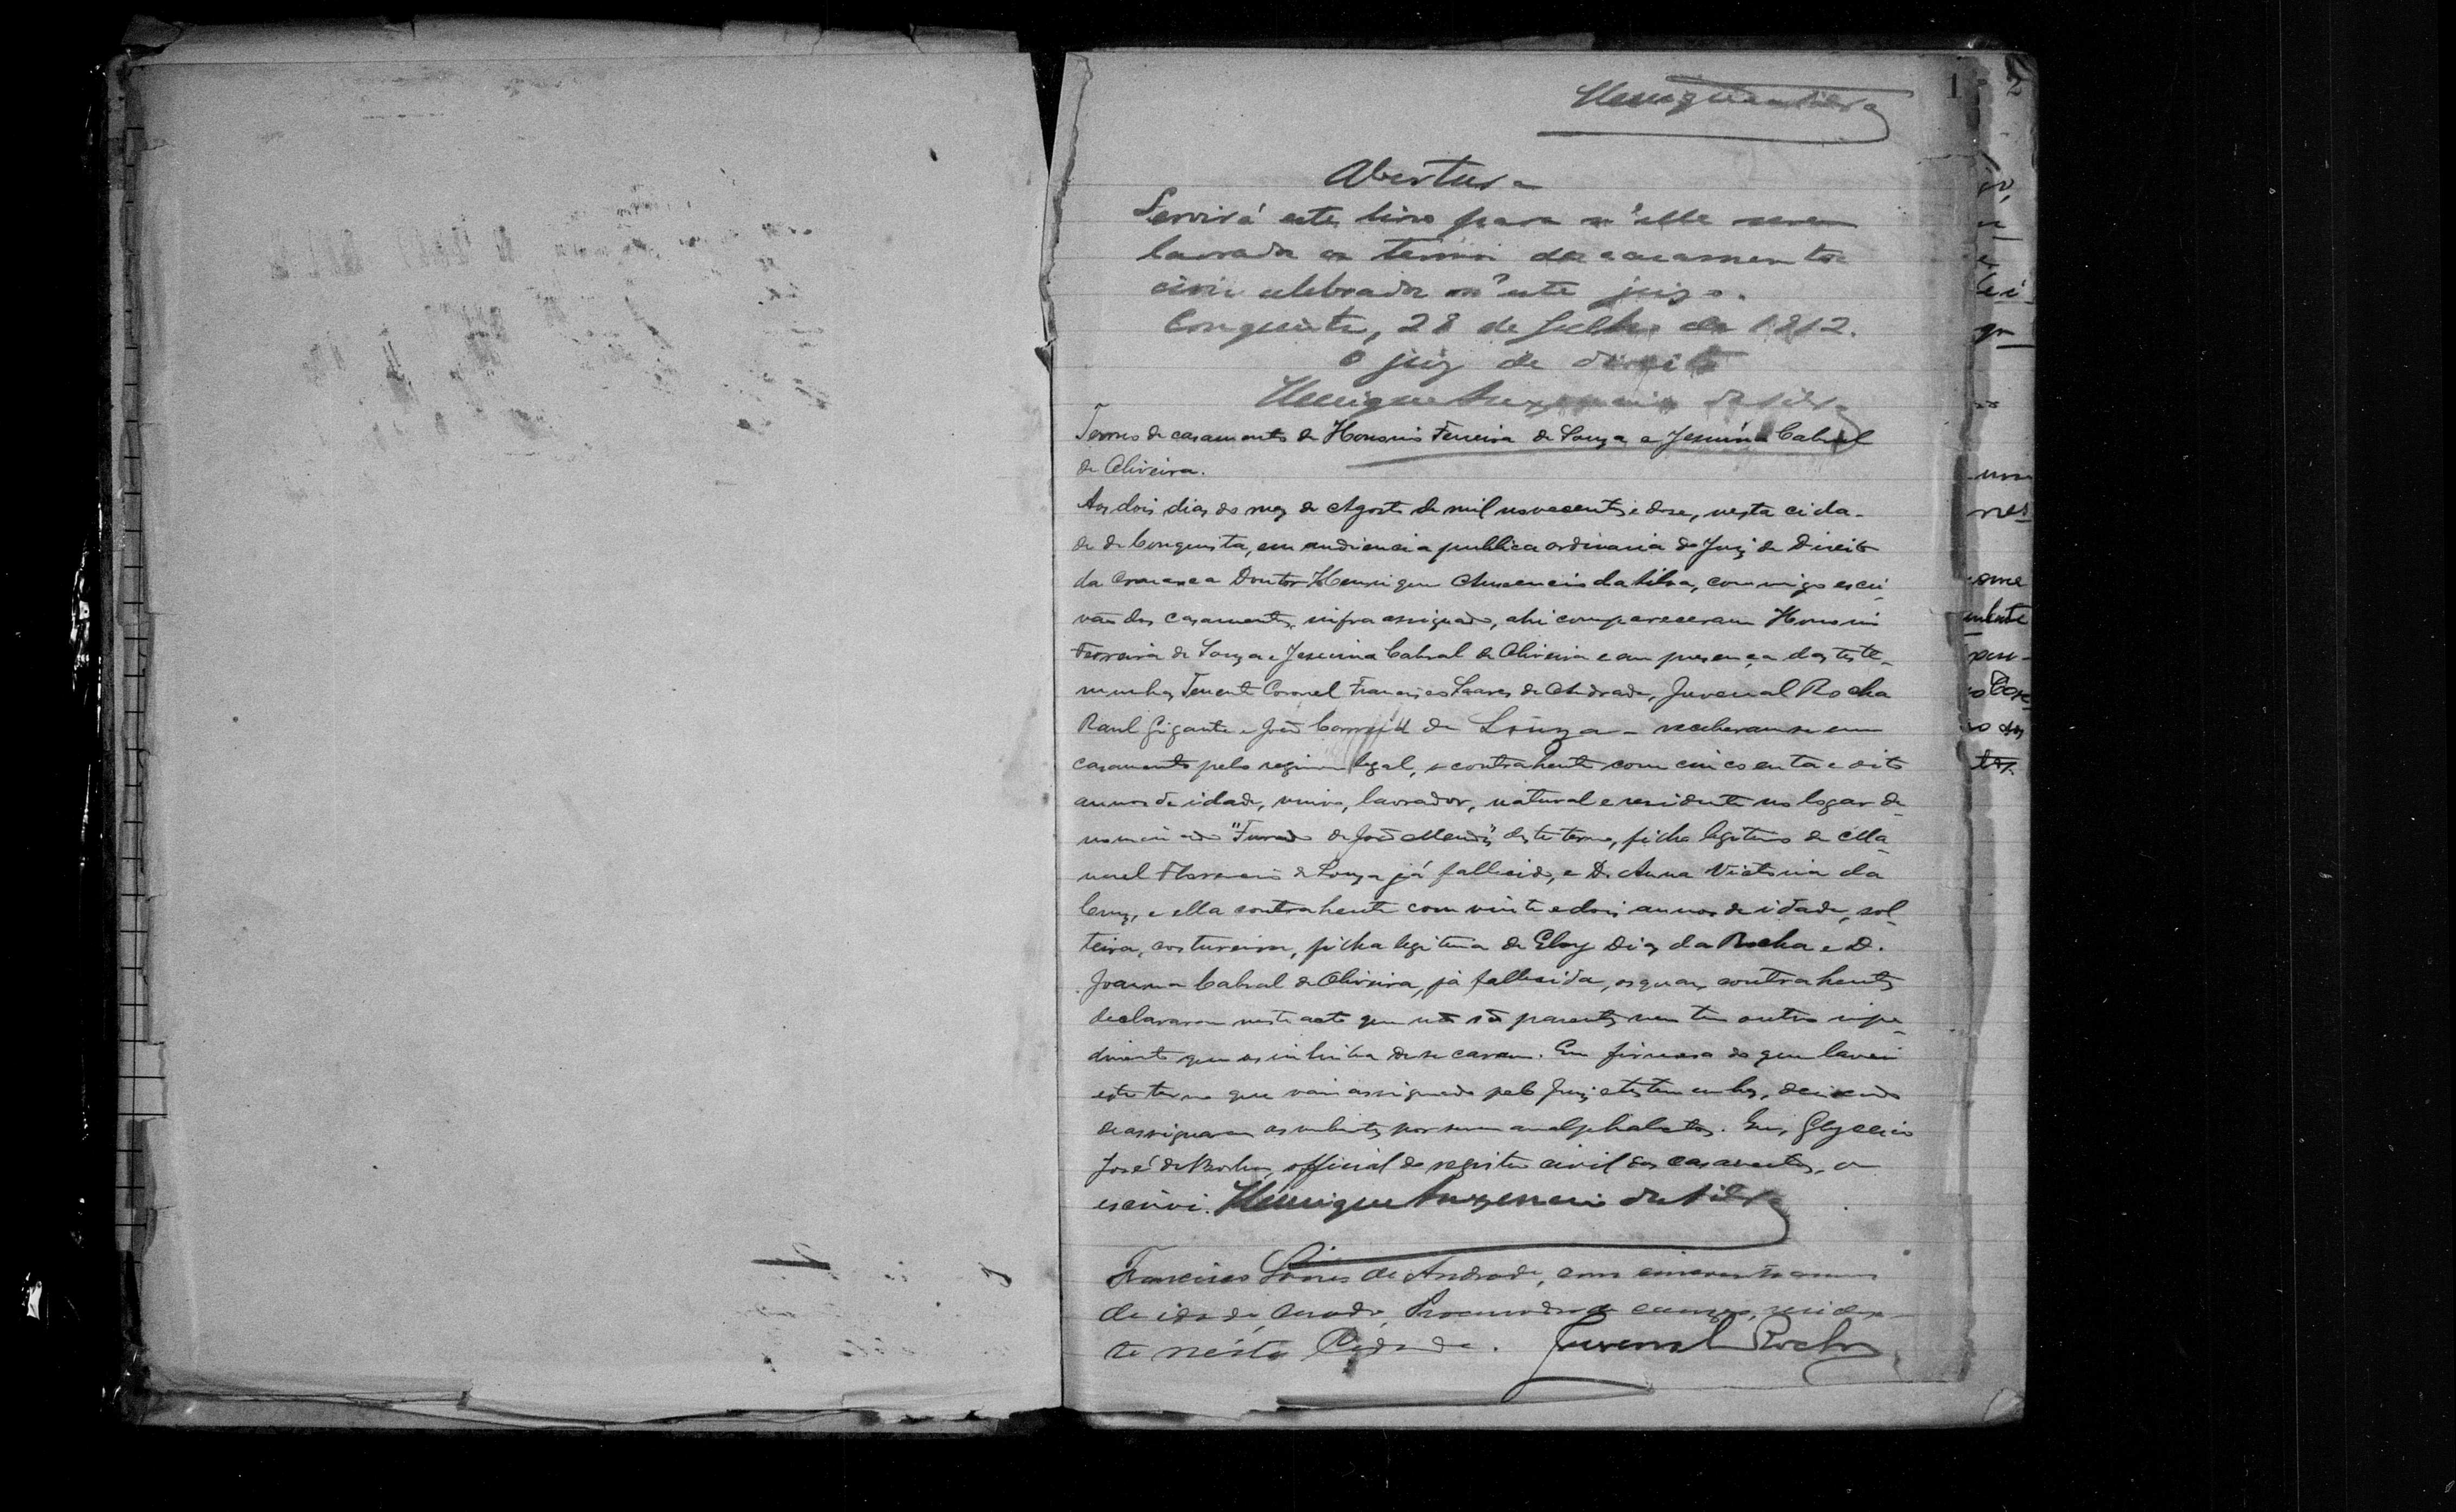 1 2
Abertura
Servirá este livro para n'elle serem
lavrados os termos dos casamentos
civis celebrados n'este juizo.
Conquista, 28 de Julho de 1912.
O juiz de direito
Henrique Auxencio da Silva
Termo de casamento de Honorio Ferreira de Souza e Jesuina Cabral
de Oliveira.
Aos dois dias do mez de Agosto de mil novecentos e dose, nesta cida-
de de Conquista, em audiencia publica ordinaria do Juiz de Direito
da Comarca Doutor Henrique Auxencio da Silva, commigo escri-
vão dos casamentos, infra assignado, ahi compareceram Honorio
Ferreira de Souza e Jesuina Cabral de Oliveira e em presença das teste-
munhas Tenente Coronel Francisco Soares de Andrade, Juvenal Rocha
Raul Gigante e João de Souza - receberam-se em
casamento pelo regimen legal, o contrahente com cincoenta e oito
annos de idade, viuvo, lavrador, natural e residente no logar de-
nominado "Furado de João Mendes" deste termo, filho legitimo de Ma-
noel Florencio de Souza já fallecido, e D. Anna Victoria da
Cruz, e ella contrahente com vinte e dois annos de idade, sol-
teira, costureira, filha legitima de Eloy Dias da Rocha e D.
Joanna Cabral de Oliveira, já fallecida, os quaes contrahentes
declararam neste acto que não são parentes nem tem outro impe-
dimento que os inhiba de se casarem. Em firmesa do que lavrei
este termo que vai assignado pelo Juiz e testemunhas, deixando
de assignarem os nubentes por serem analphabetos. Eu, Glycerio
José da Rocha, official do registro civil dos casamentos, o
escrevi. Henrique Auxencio da Silva
Francisco Soares de Andrade, com cincoenta annos
de idade, casado, Procurador de causas, residen-
te nesta Cidade. Juvenal Rocha